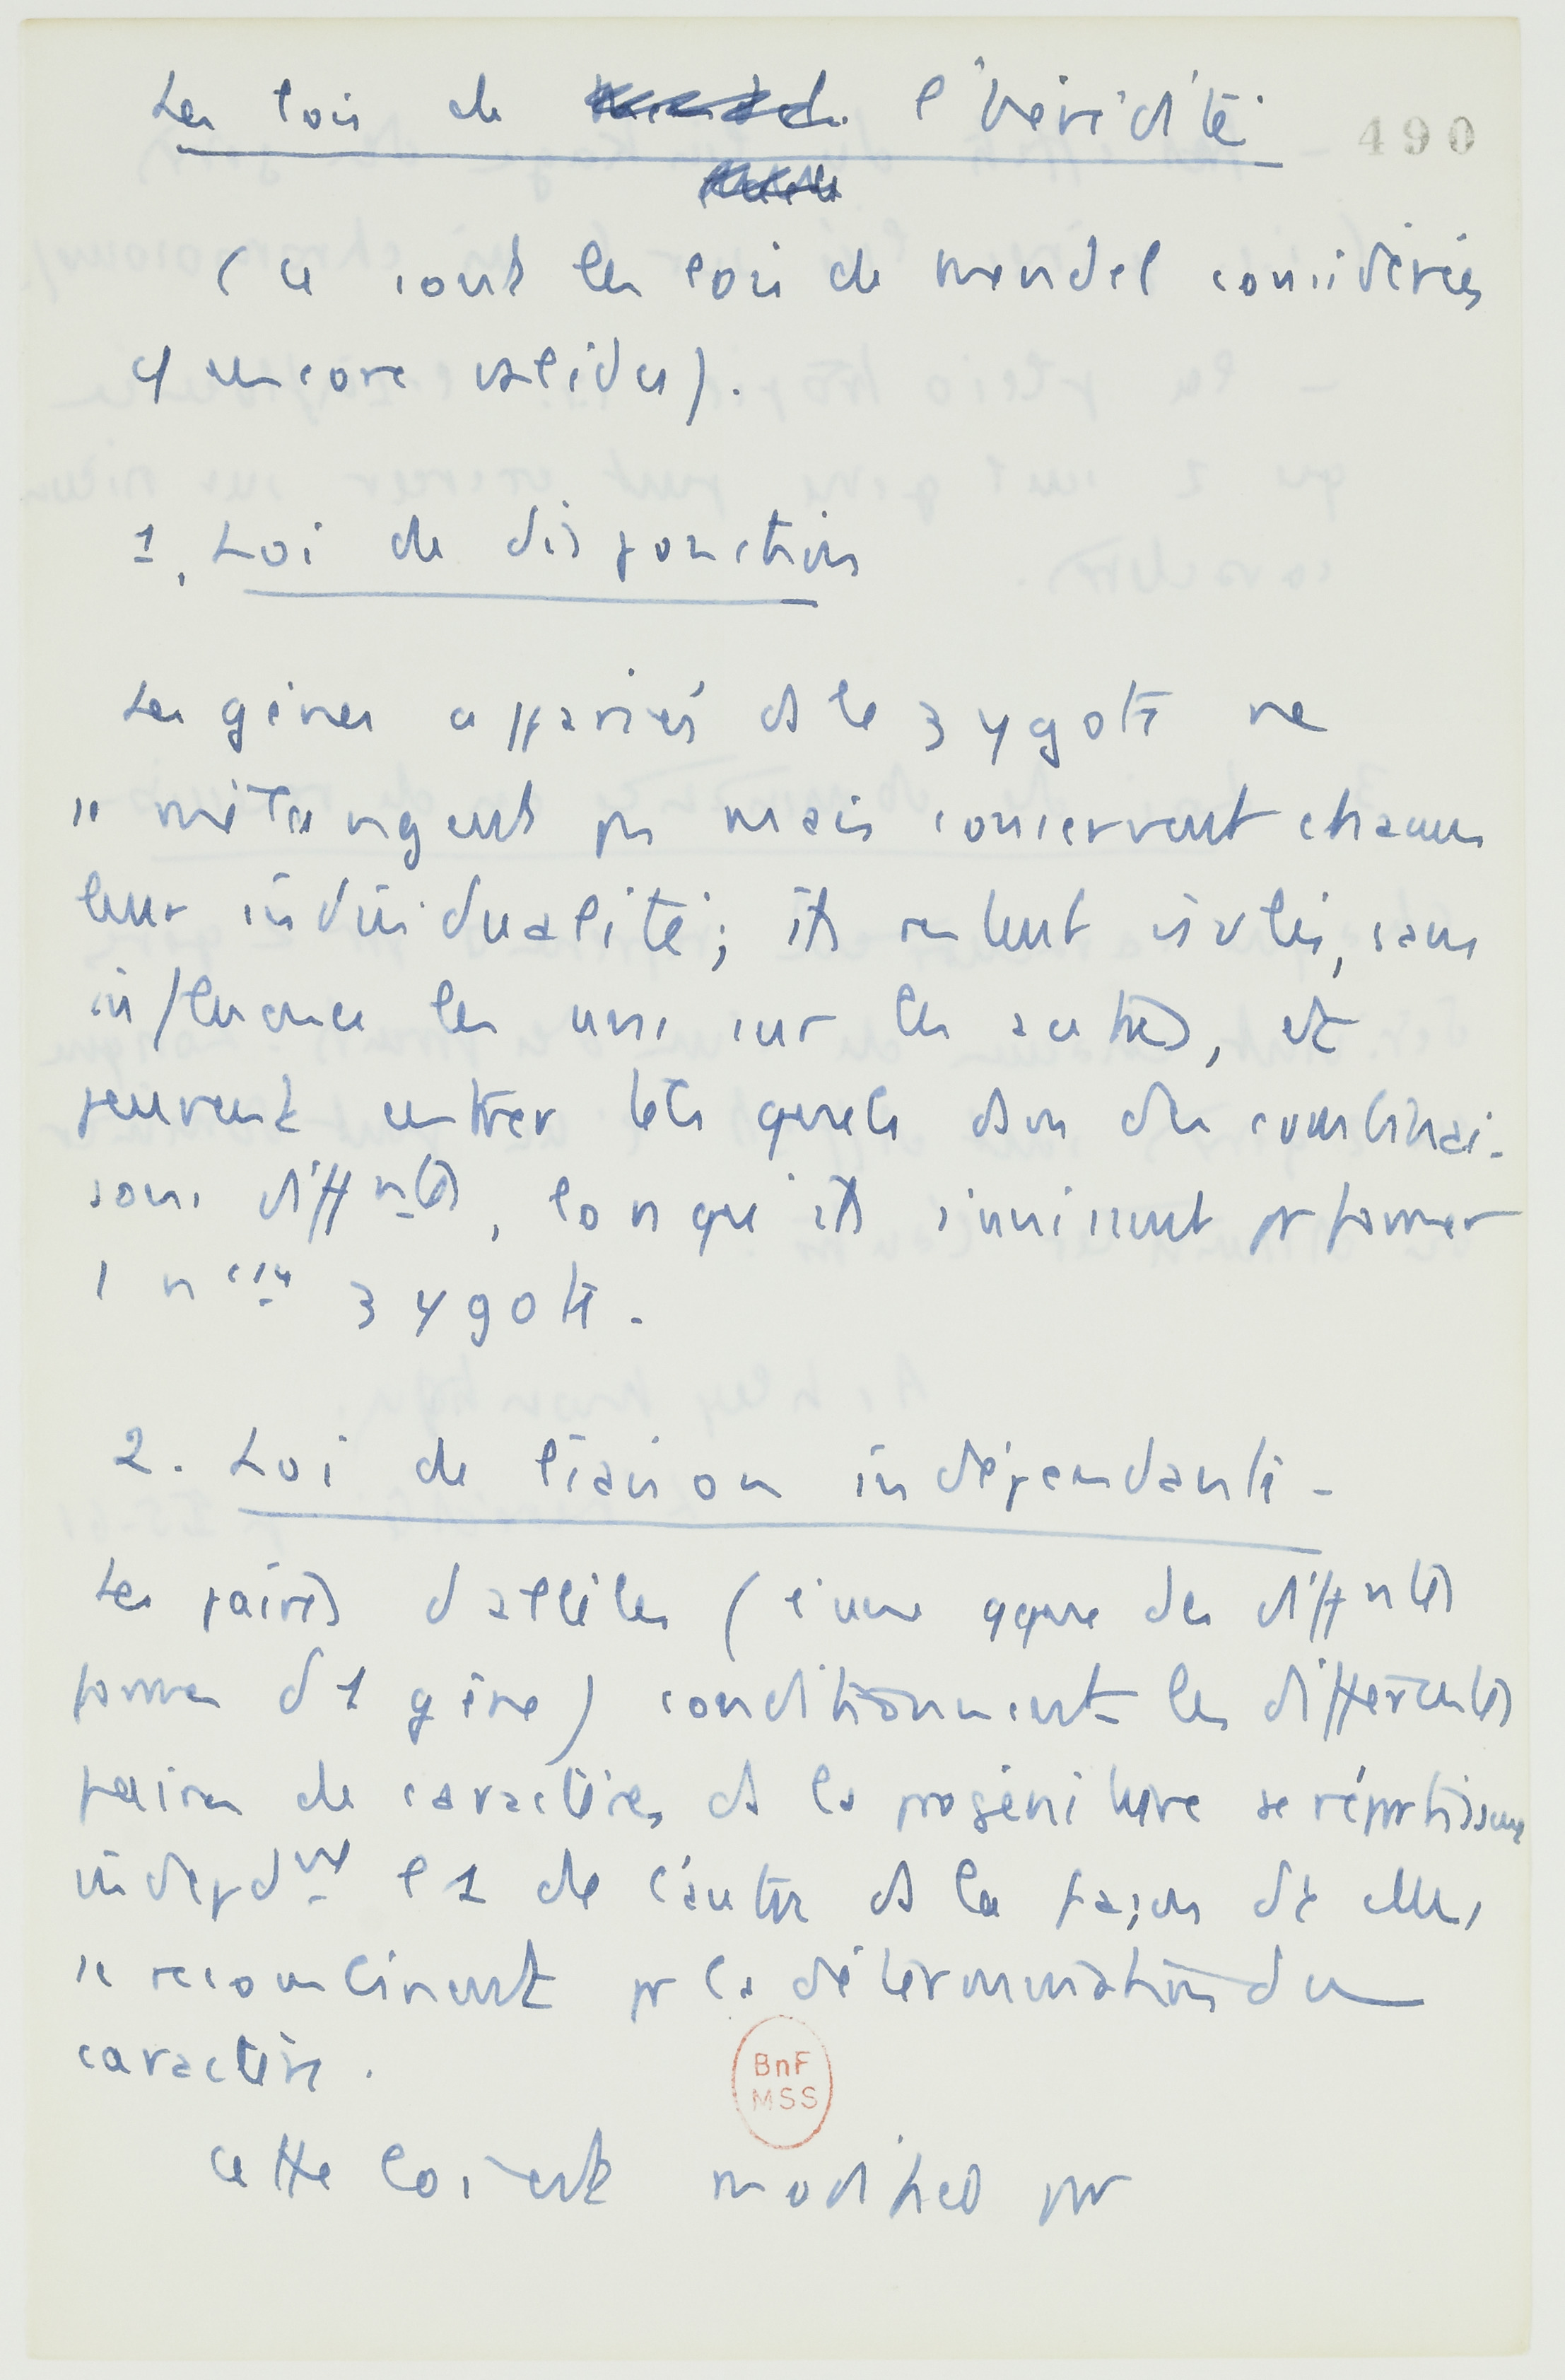 Les lois de l'hérédité
490
(ce sont les lois de Mendel considérées
encore valides).
1. Loi de disjonction
Les gènes appariés ds le zygote ne
se mélangent pas mais conservent chacun
leur individualité; ils restent isolés, sans
influence les uns sur les autres, et
peuvent entrer tels quels dans des combinai-
sons diff ntes, lorsqu'ils s'unissent pr former
1 zygote.
2. Loi de liaison indépendante -
Les paires d'allèles (l'une qque des diff ntes
formes d'1 gène) conditionnent les différentes
paires de caractères ds la progéniture se répartissent
indepdmt l'1 de l'autre ds la façon dt elles
se recombinent pr la détermination du
caractère.
BnF
MSS
Cette loi est modified par